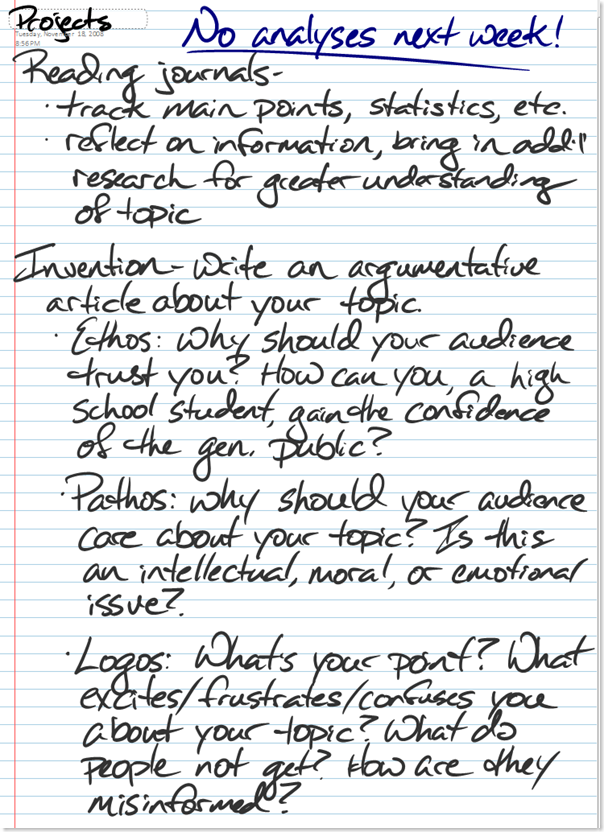 Projects
Tuesday, November 18, 2008
8:36 PM
No analyses next week!
Reading journals-
· track main points, statistics, etc.
· reflect on information, bring in add'l
research for greater understanding
of topic
Invention- Write an argumentative
article about your topic.
· Ethos: Why should your audience
trust you? How can you, a high
school student, gain the confidence
of the gen. public?
· Pathos: why should your audience
care about your topic? Is this
an intellectual, moral, or emotional
issue?
· Logos: What's your point? What
excites/frustrates/confuses you
about your topic? What do
people not get? How are they
misinformed?